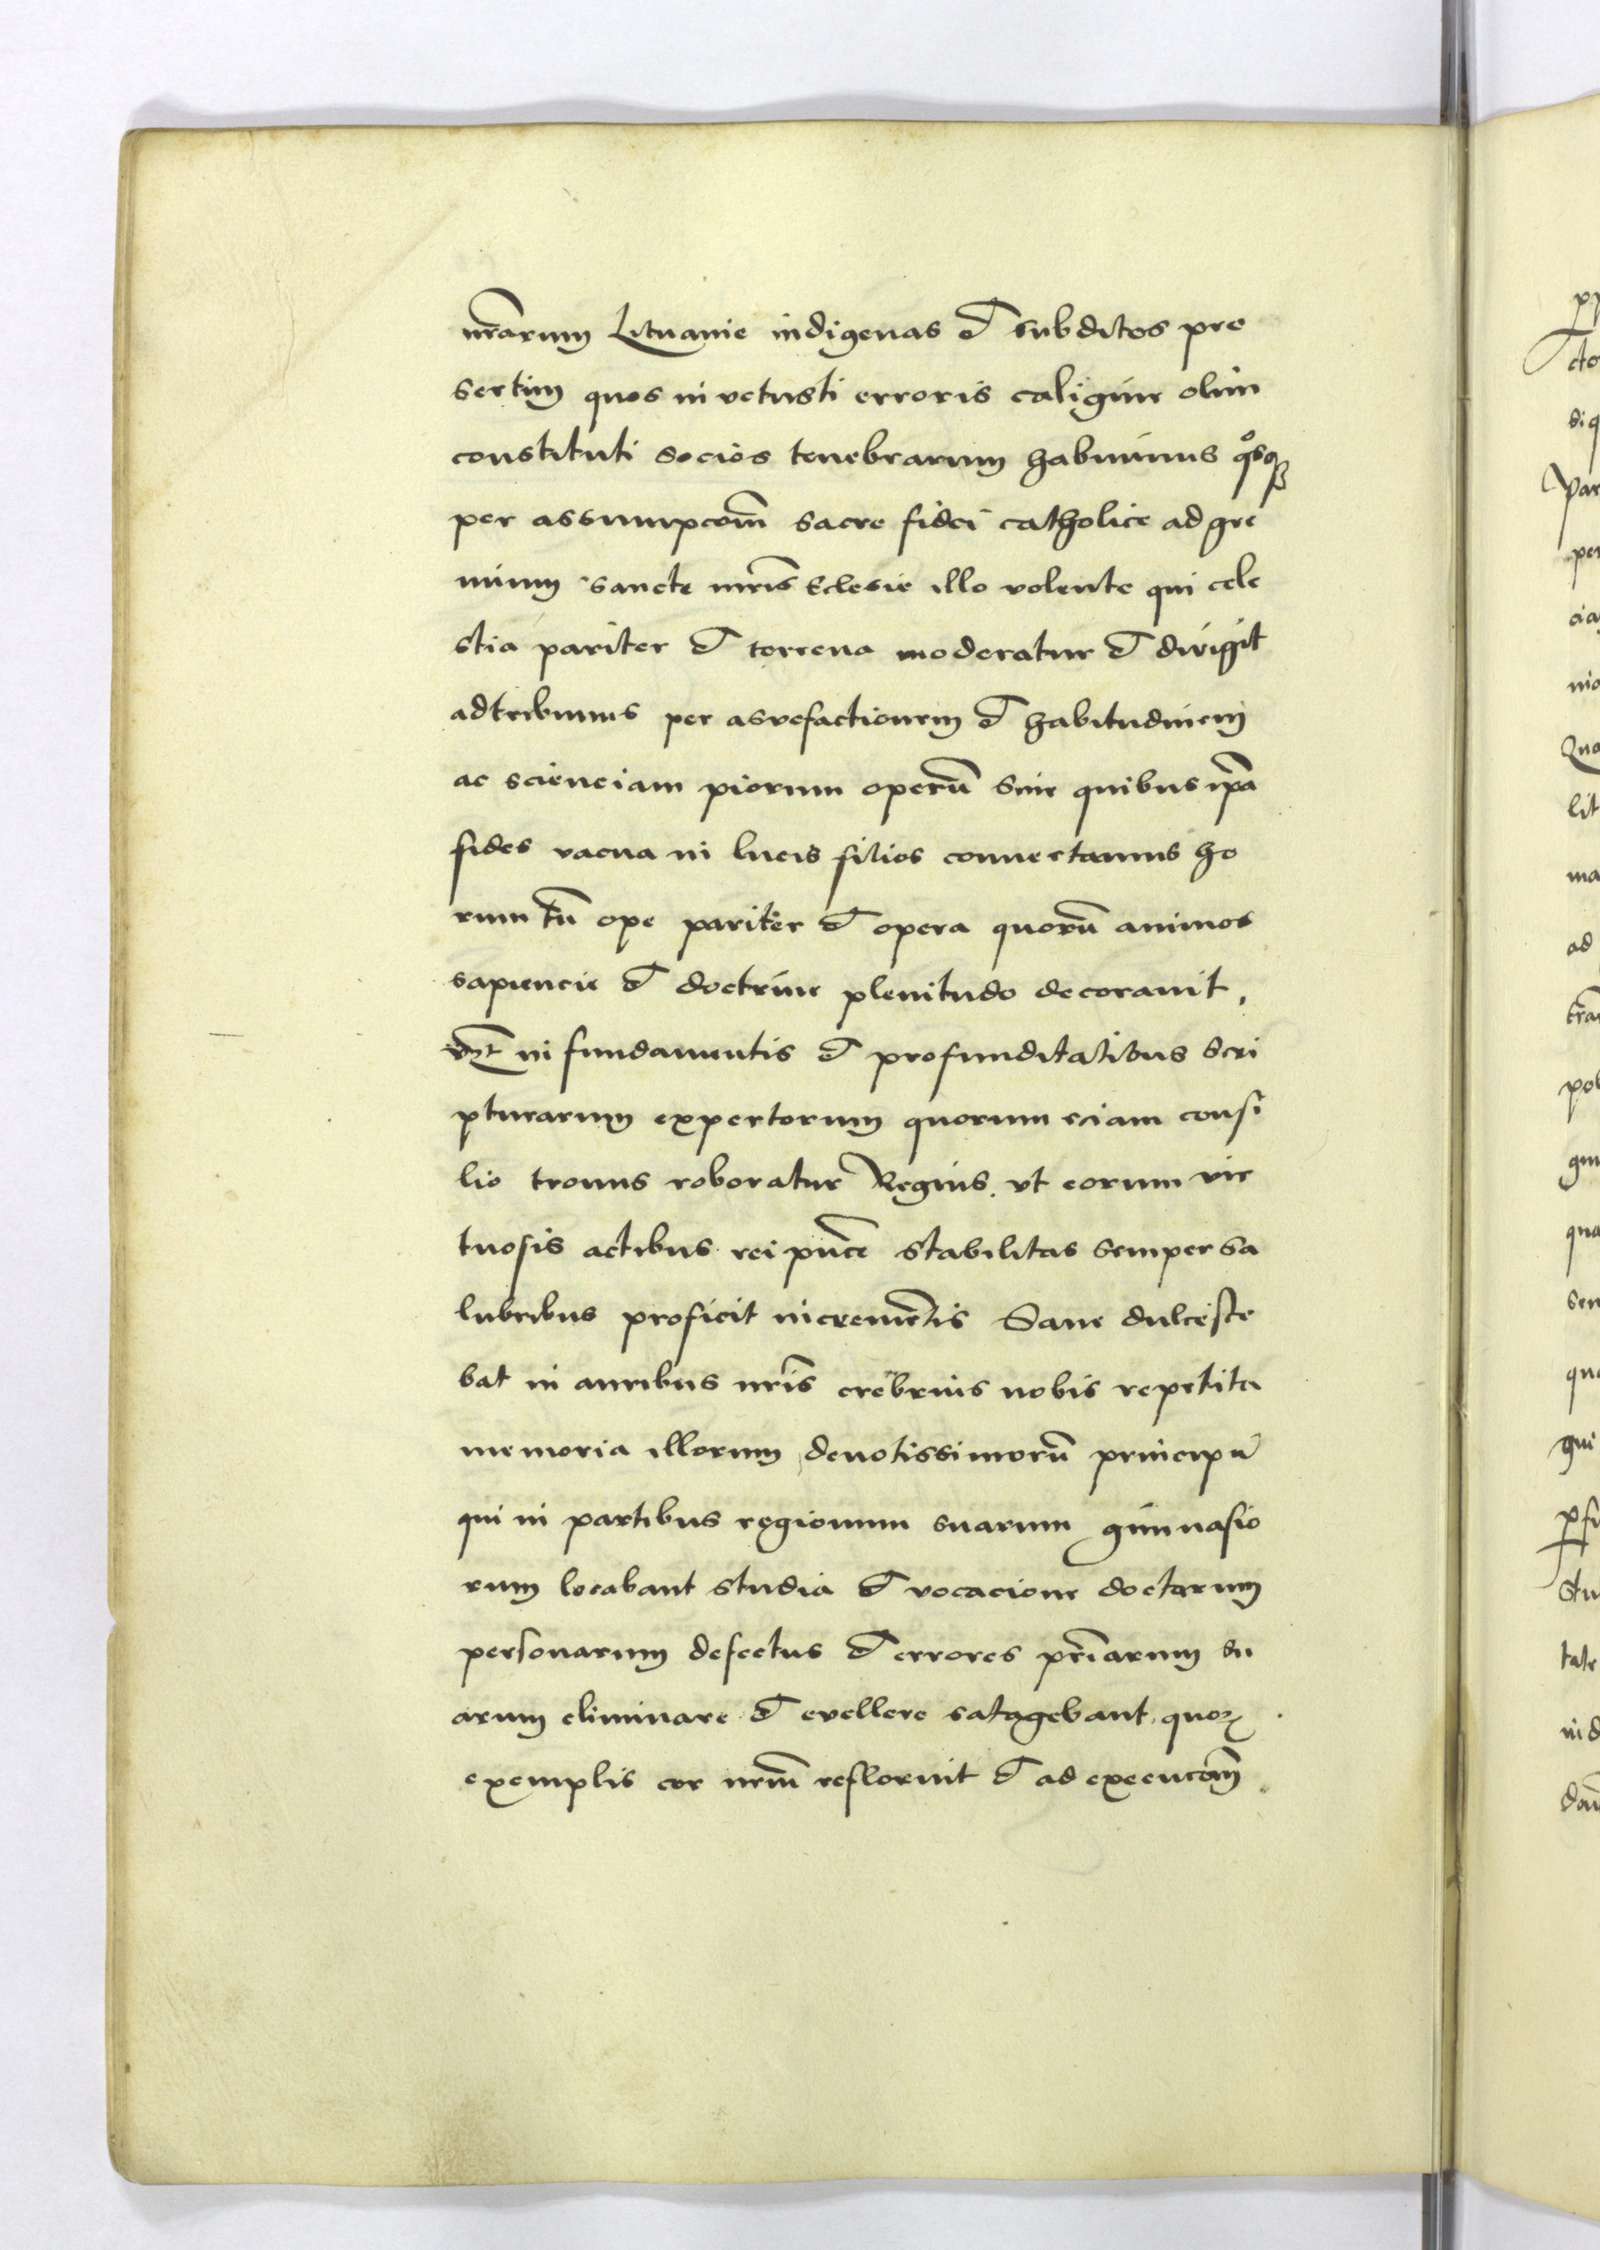 nr̃arum Lituanie indigenas et subditos pre
sertim quos in vetusti erroris caligine olim
constituti socios tenebrarum habuimus qͦsqꝫ
per assumpcom̃ sacre fidei catholice ad gre
mium sancte mr̃is Eclesie illo volente qui cele
stia pariter et terrena moderatur et dirigit
adtribuimus per asvefactionem et habitudinem
ac scienciam piorum operũ sine quibus ip̃a
fides vacua in lucis filios convertamus ho
rum tñ ope pariter et opera quorũ animos
sapiencie et doctrine plenitudo decoravit,
in fundamentis et profunditatibus scri
pturarum expertorum quorum eciam consi
lio tronus roboratur Regius. vt eorum vir
tuosis actibus rei pu͂ce stabilitas semper sa
lubribus proficit incremẽtis Sane dulcesce
bat in auribus nr̃is crebrius nobis repetita
memoria illorum devotissimorũ principũ
qui in partibus regionum suarum gimnasio
rum locabant studia et vocacione doctarum
personarum defectus et errores pr̃iarum su
arum eliminare et evellere satagebant. quoꝝ
exemplis cor nr̃m refloruit et ad execucom̃